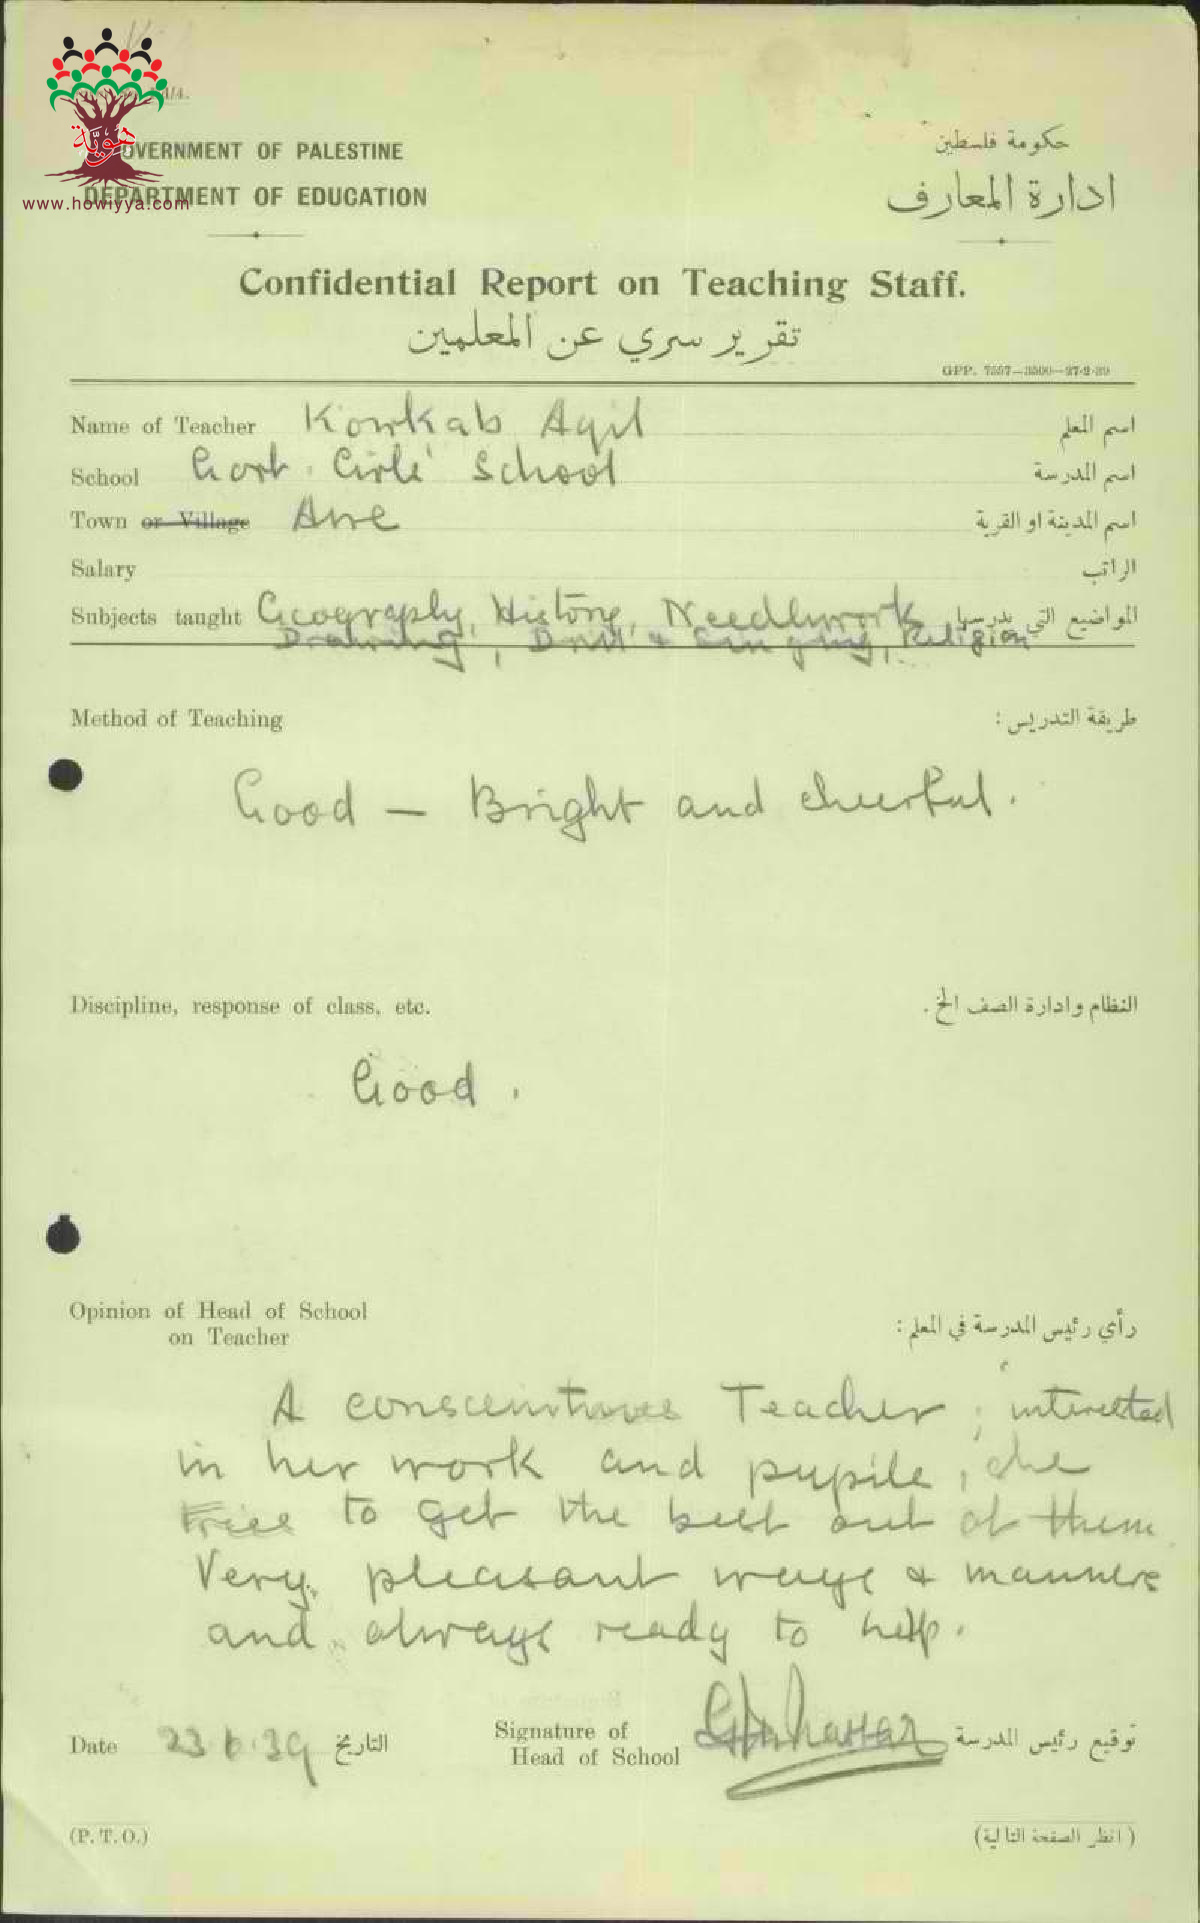 هوية
www.howiyya.com
/4.
GOVERNMENT OF PALESTINE
حكومة فلسطين
DEPARTMENT OF EDUCATION
ادارة المعارف
Confidential Report on Teaching Staff.
تقرير سري عن المعلمين
GPP. 7557—3500—27-2-39
Name of Teacher Kowkab Aqil اسم المعلم
School Govt. Girls' School اسم المدرسة
Town or Village Acre اسم المدينة او القرية
Salary الراتب
Subjects taught Geography, History, Needlework المواضيع التي يدرسها
Drawing, Drill & Singing, Religion
Method of Teaching طريقة التدريس :
Good — Bright and cheerful.
Discipline, response of class, etc. النظام وادارة الصف الخ .
Good.
Opinion of Head of School
on Teacher رأي رئيس المدرسة في المعلم :
A conscientious Teacher, interested
in her work and pupils, she
tries to get the best out of them.
Very pleasant ways & manners
and always ready to help.
Date 23.6.39 التاريخ
Signature of
Head of School توقيع رئيس المدرسة
(P. T. O.) (انظر الصفحة التالية)